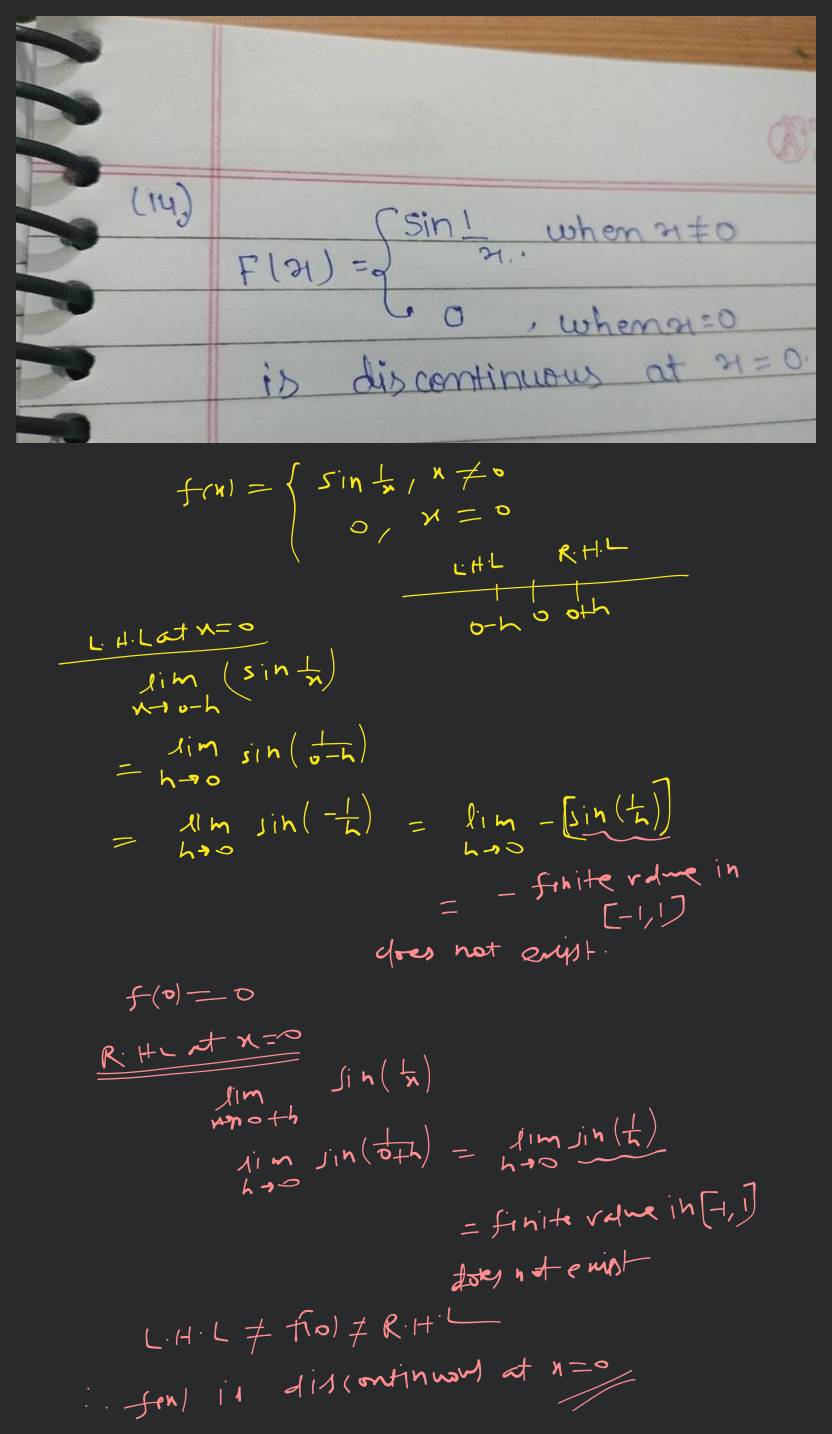 (14)
F(x) = { sin 1/x , when x ≠ 0
0 , when x = 0
is discontinuous at x = 0.
f(x) = { sin 1/x , x ≠ 0
0, x = 0
L.H.L R.H.L
0-h 0 0+h
L.H.L at x = 0
lim x→0-h (sin 1/x)
= lim h→0 sin(1/(0-h))
= lim h→0 sin(-1/h) = lim h→0 -[sin(1/h)]
= - finite value in
[-1,1]
does not exist.
f(0) = 0
R.HL at x=0
lim x→0+h sin(1/x)
lim h→0 sin(1/(0+h)) = lim h→0 sin(1/h)
= finite value in [-1,1]
does not exist
L.H.L ≠ f(0) ≠ R.H.L
∴ f(x) is discontinuous at x=0